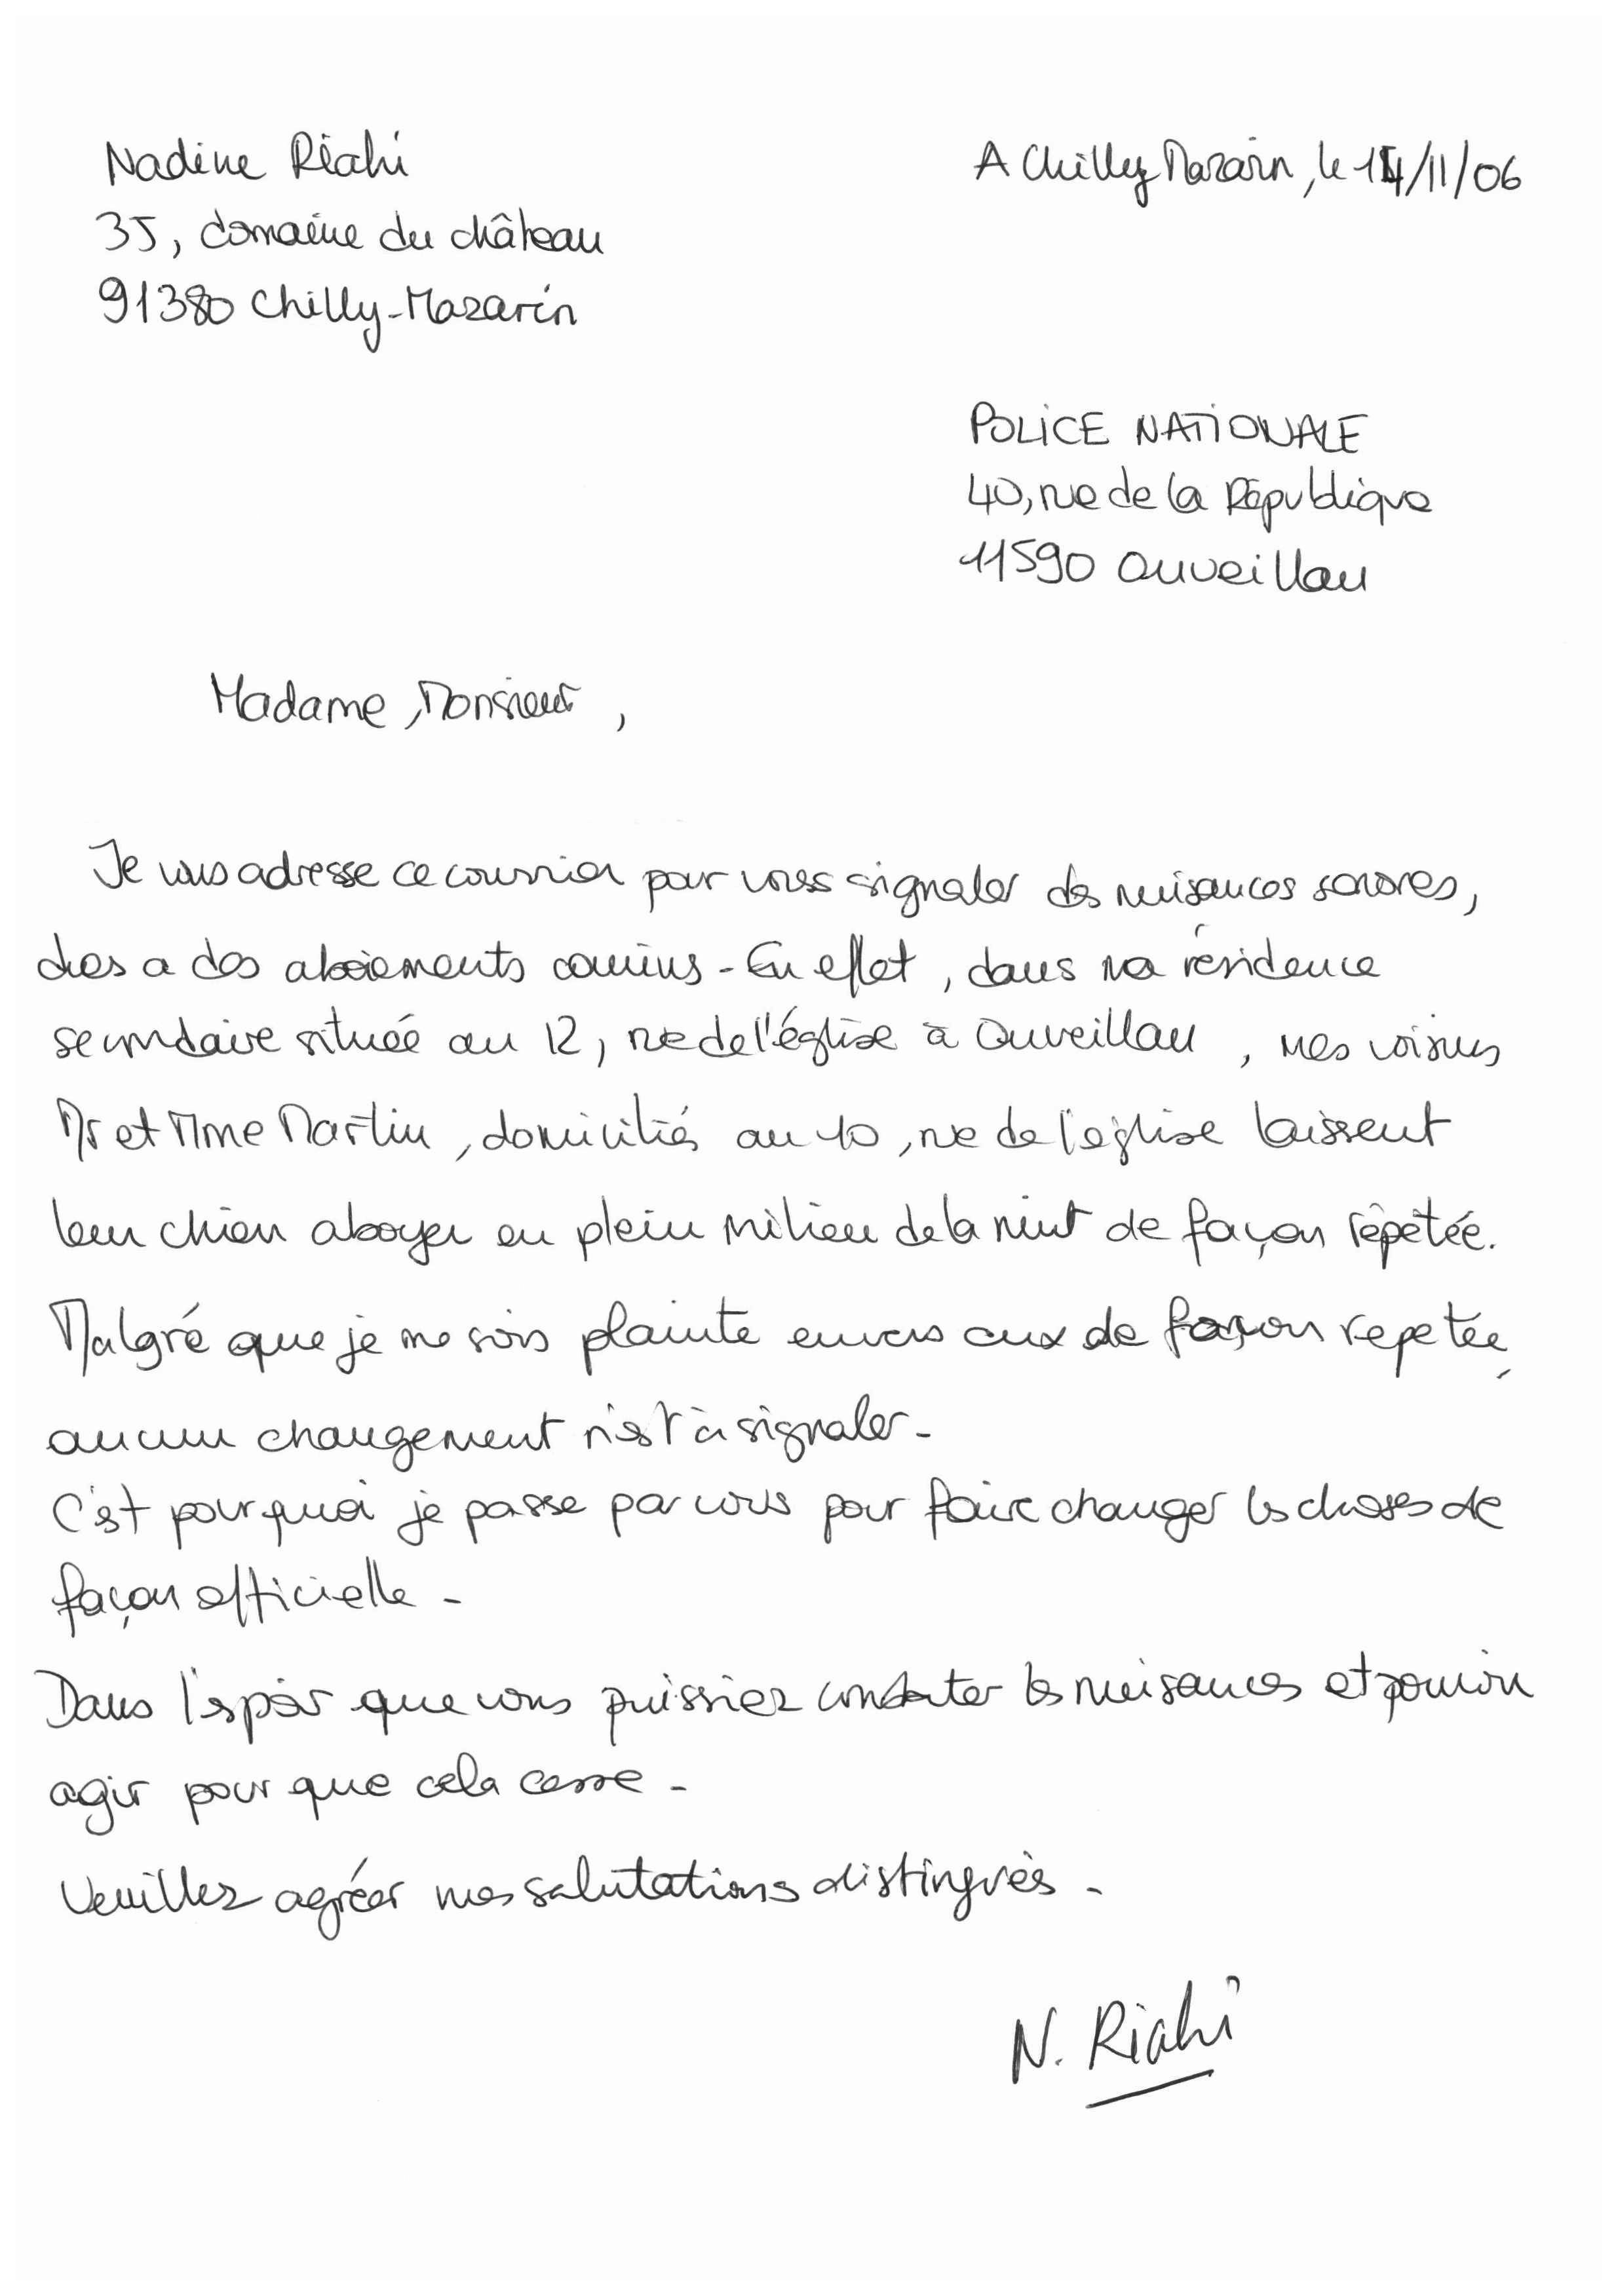 Nadine Riahi
A Chilly Mazarin, le 14/11/06
35, domaine du château
91380 Chilly-Mazarin
POLICE NATIONALE
40, rue de la République
11590 Ouveillan
Madame, Monsieur,
Je vous adresse ce courrier pour vous signaler des nuisances sonores,
dues a des aboiements canins - En effet, dans ma résidence
secondaire située au 12, rue de l'église à Ouveillan, mes voisins
Mr et Mme Martin, domiciliés au 10, rue de l'église laissent
leur chien aboyer en plein milieu de la nuit de façon répétée.
Malgré que je me sois plainte envers eux de façon repetée,
aucun changement n'est à signaler -
C'est pourquoi je passe par vous pour faire changer les choses de
façon officielle -
Dans l'espoir que vous puissiez constater les nuisances et pouvoir
agir pour que cela cesse -
Veuillez agréer mes salutations distingués -
N. Riahi